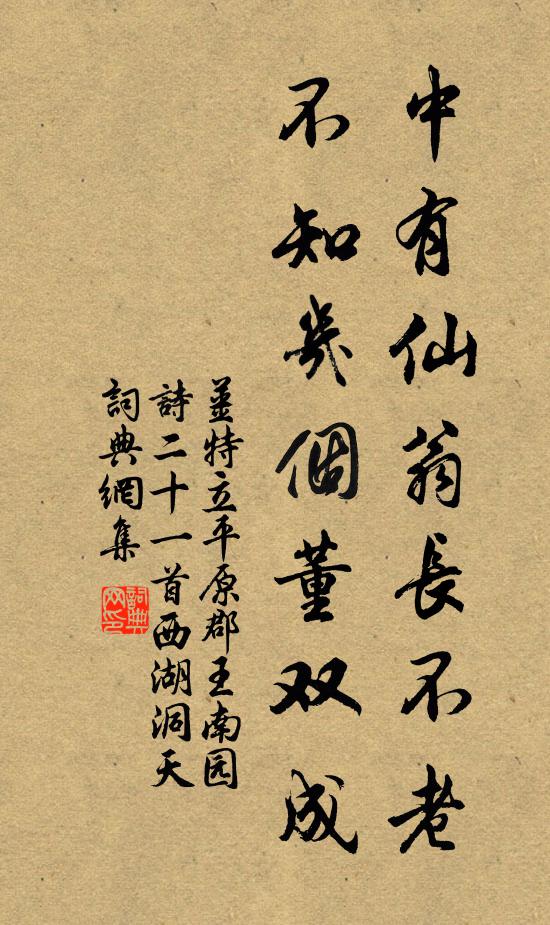 中有仙翁長不老
不知幾個董双成
薑特立平原郡王南园
詩二十一首西湖洞天
詞典網集
詞典网印